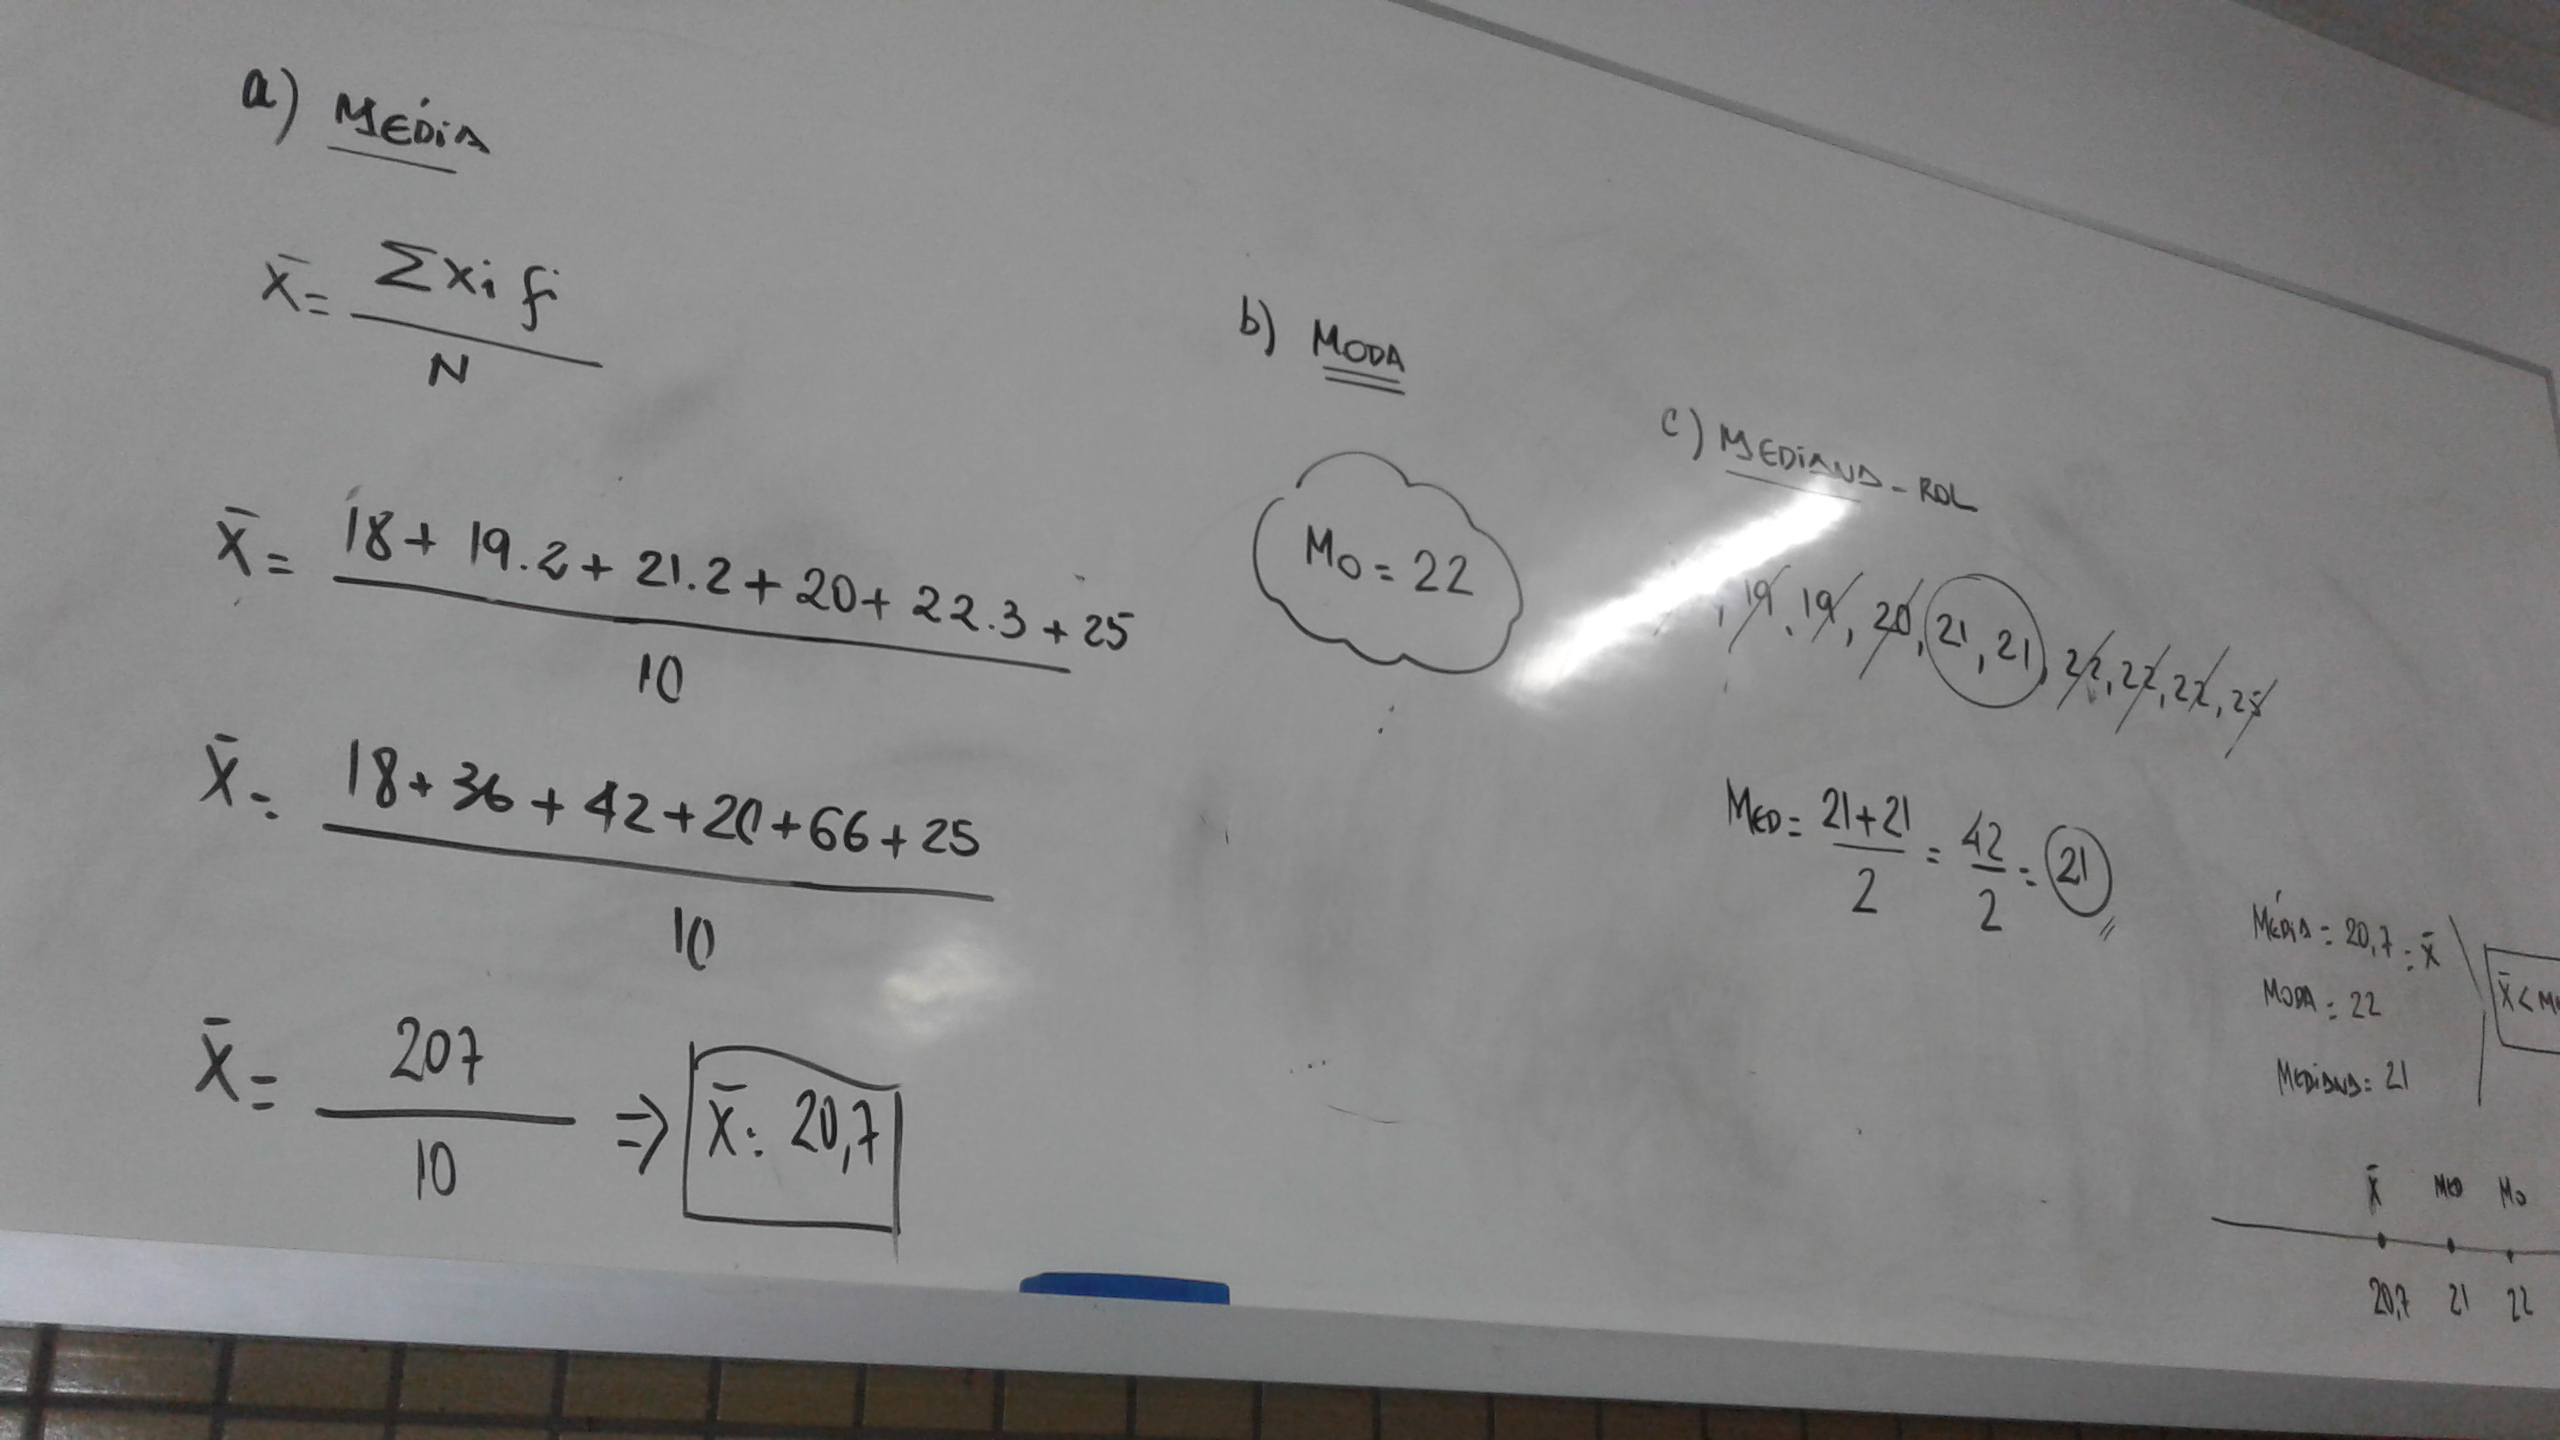 a) MÉDIA
x̄ = Σxi fi
N
x̄ = 18 + 19.2 + 21.2 + 20 + 22.3 + 25
10
x̄ = 18 + 36 + 42 + 20 + 66 + 25
10
x̄ = 207
10
⇒ x̄ = 20,7
b) MODA
Mo = 22
c) MEDIANA - ROL
, 19, 19, 20, 21, 21, 22, 22, 22, 25
MED = 21+21 = 42 = 21
2 2
MÉDIA = 20,7 = x̄
MODA = 22
MEDIANA = 21
x̄ <
x̄ MED Mo
20,7 21 22